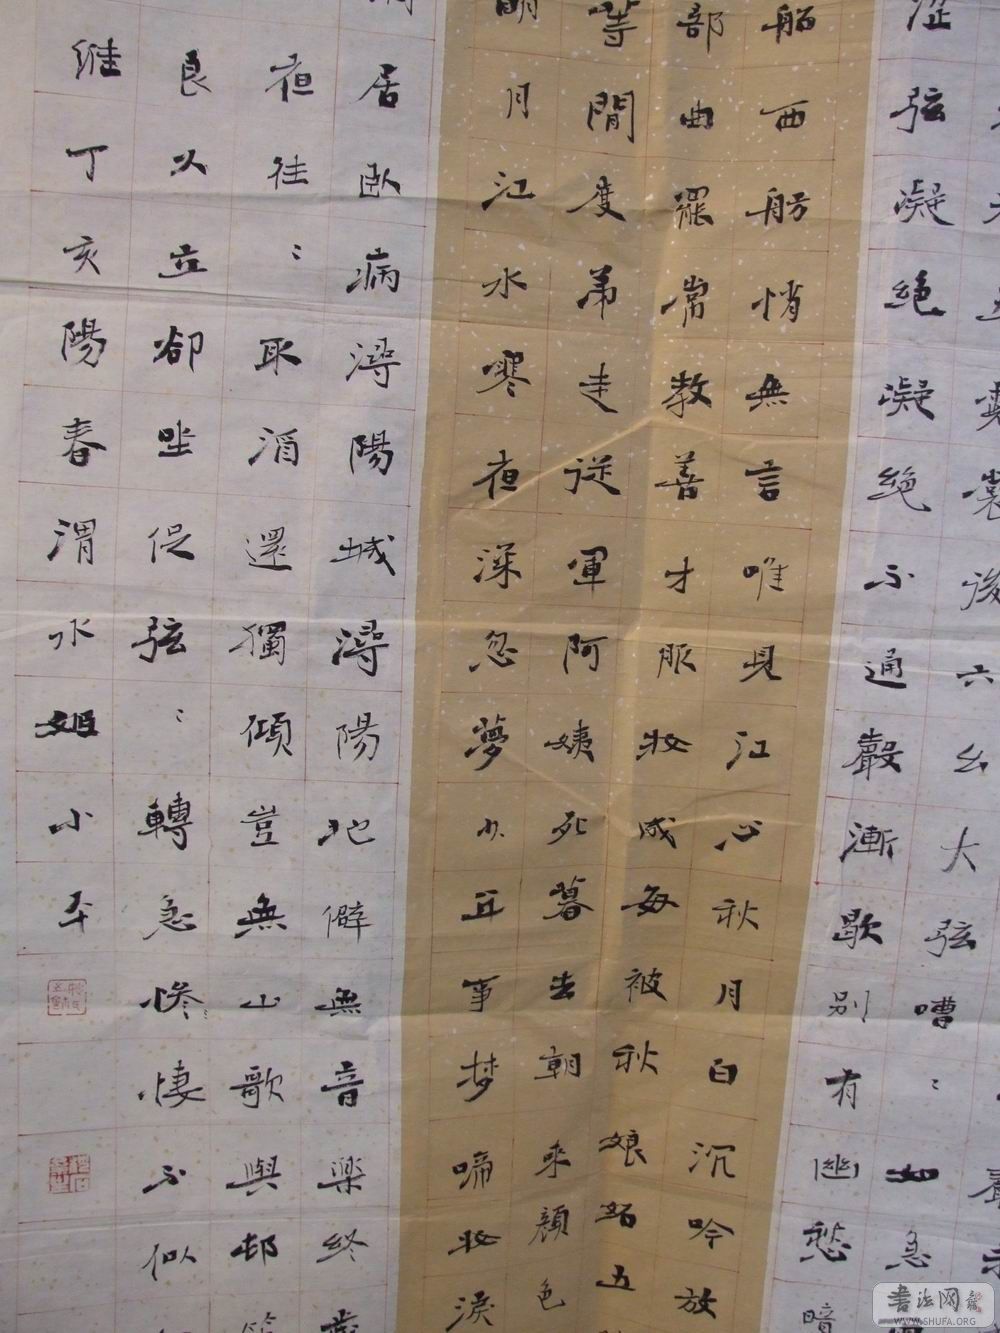 霓裳後六幺大弦嘈〻如急
澀弦凝絕凝絕不通聲漸歇別有幽愁暗
船西舫悄無言唯見江心秋月白沉吟放
部曲罷常教善才服妝成每被秋娘妬五
等閒度弟走從軍阿姨死暮去朝來顏色
明月江水寒夜深忽夢少年事梦啼妝淚
居臥病潯陽城潯陽地僻無音樂終歲
夜往〻取酒還獨傾豈無山歌與邨笛
良久立卻坐促弦〻轉急慘悽不似
維丁亥陽春渭水姬小平
書法网
WWW.SHUFA.ORG